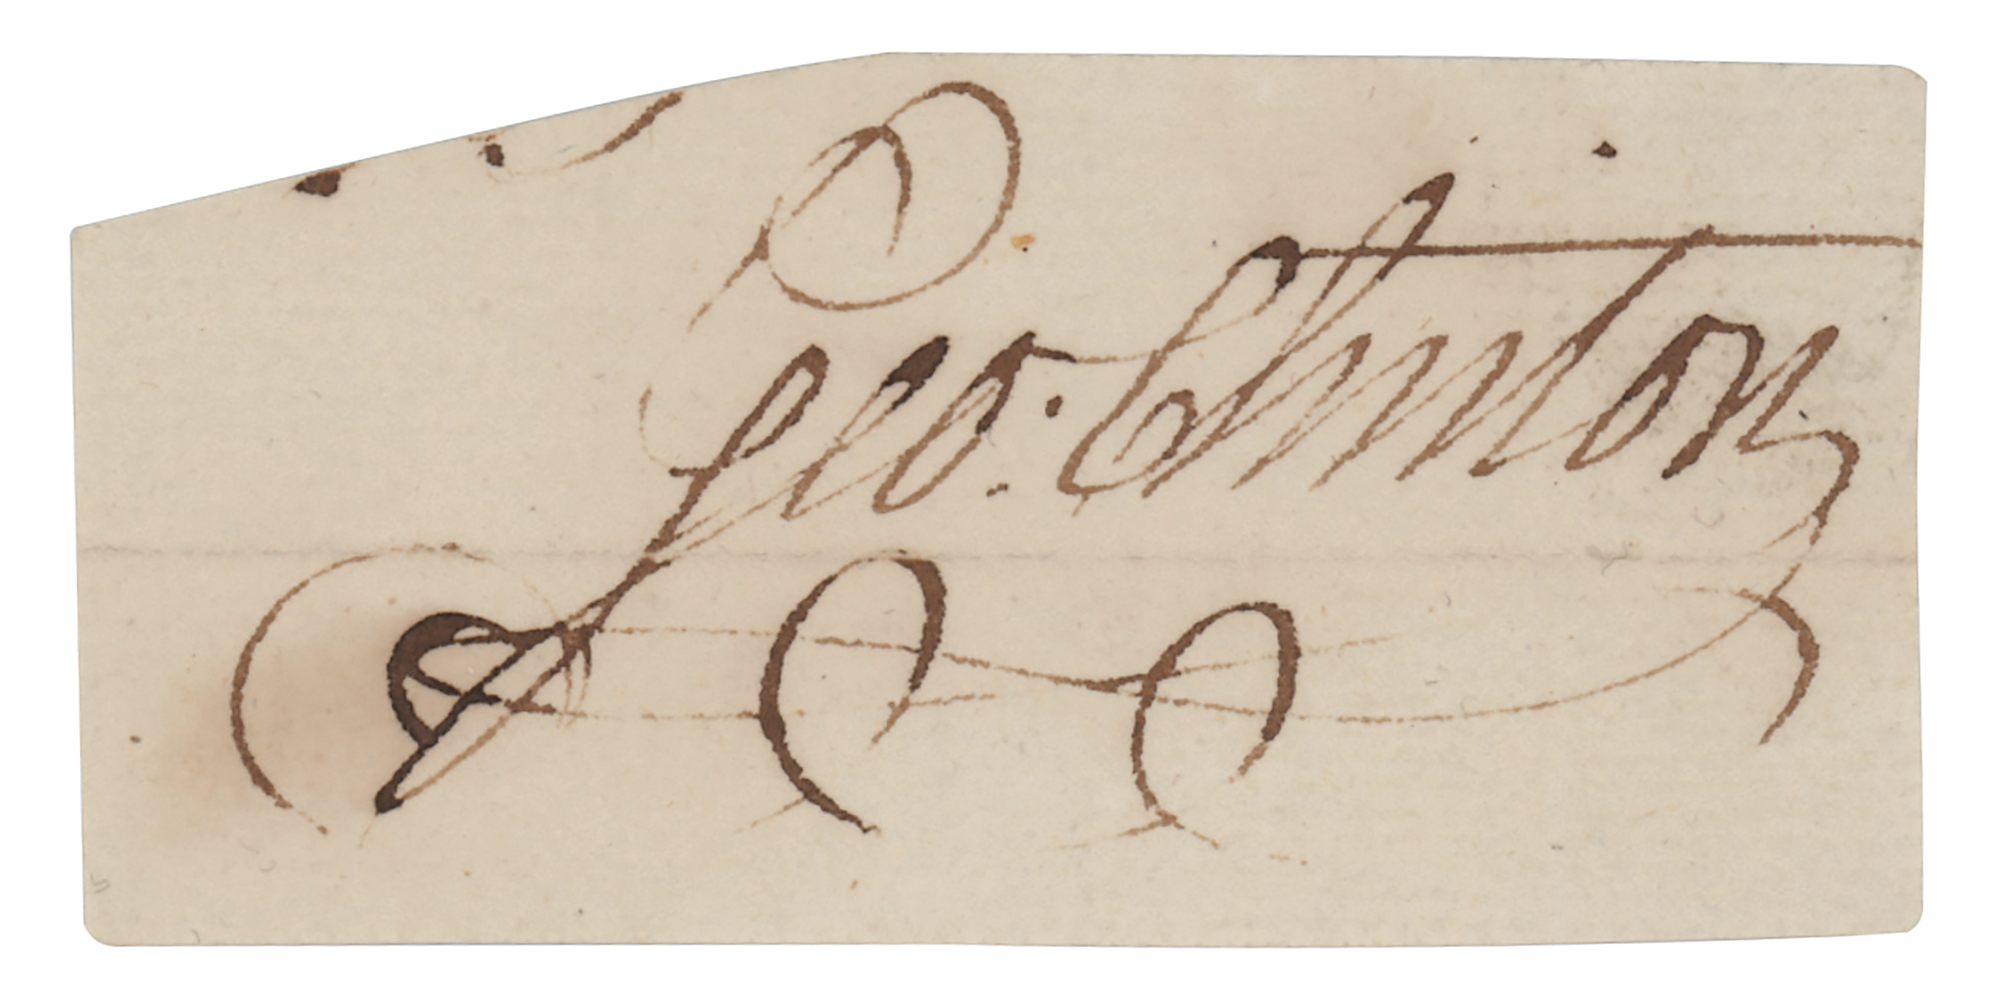 Geo. Clinton